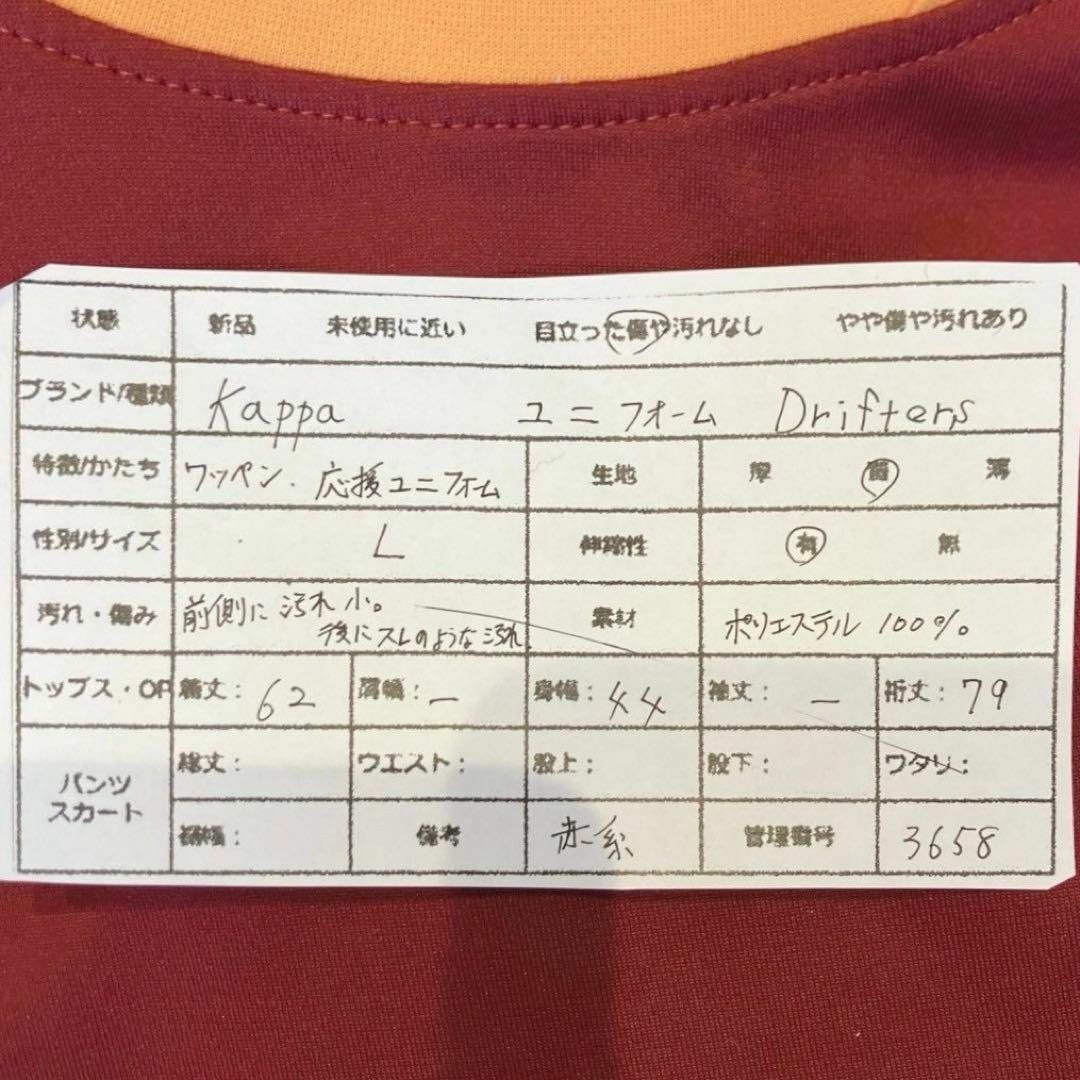 状態 新品 未使用に近い 目立った傷や汚れなし やや傷や汚れあり
ブランド/種類 Kappa ユニフォーム Drifters
特徴/かたち ワッペン. 応援ユニフォーム 生地 厚 普 薄
性別/サイズ L 伸縮性 有 無
汚れ・傷み 前側に汚れ小。
後にスレのような汚れ 素材 ポリエステル 100%.
トップス・OP 着丈: 62 肩幅: — 身幅: 44 袖丈: — 裄丈: 79
パンツ
スカート
総丈: ウエスト: 股上: 股下: ワタリ:
裾幅: 備考 赤系 管理番号 3658